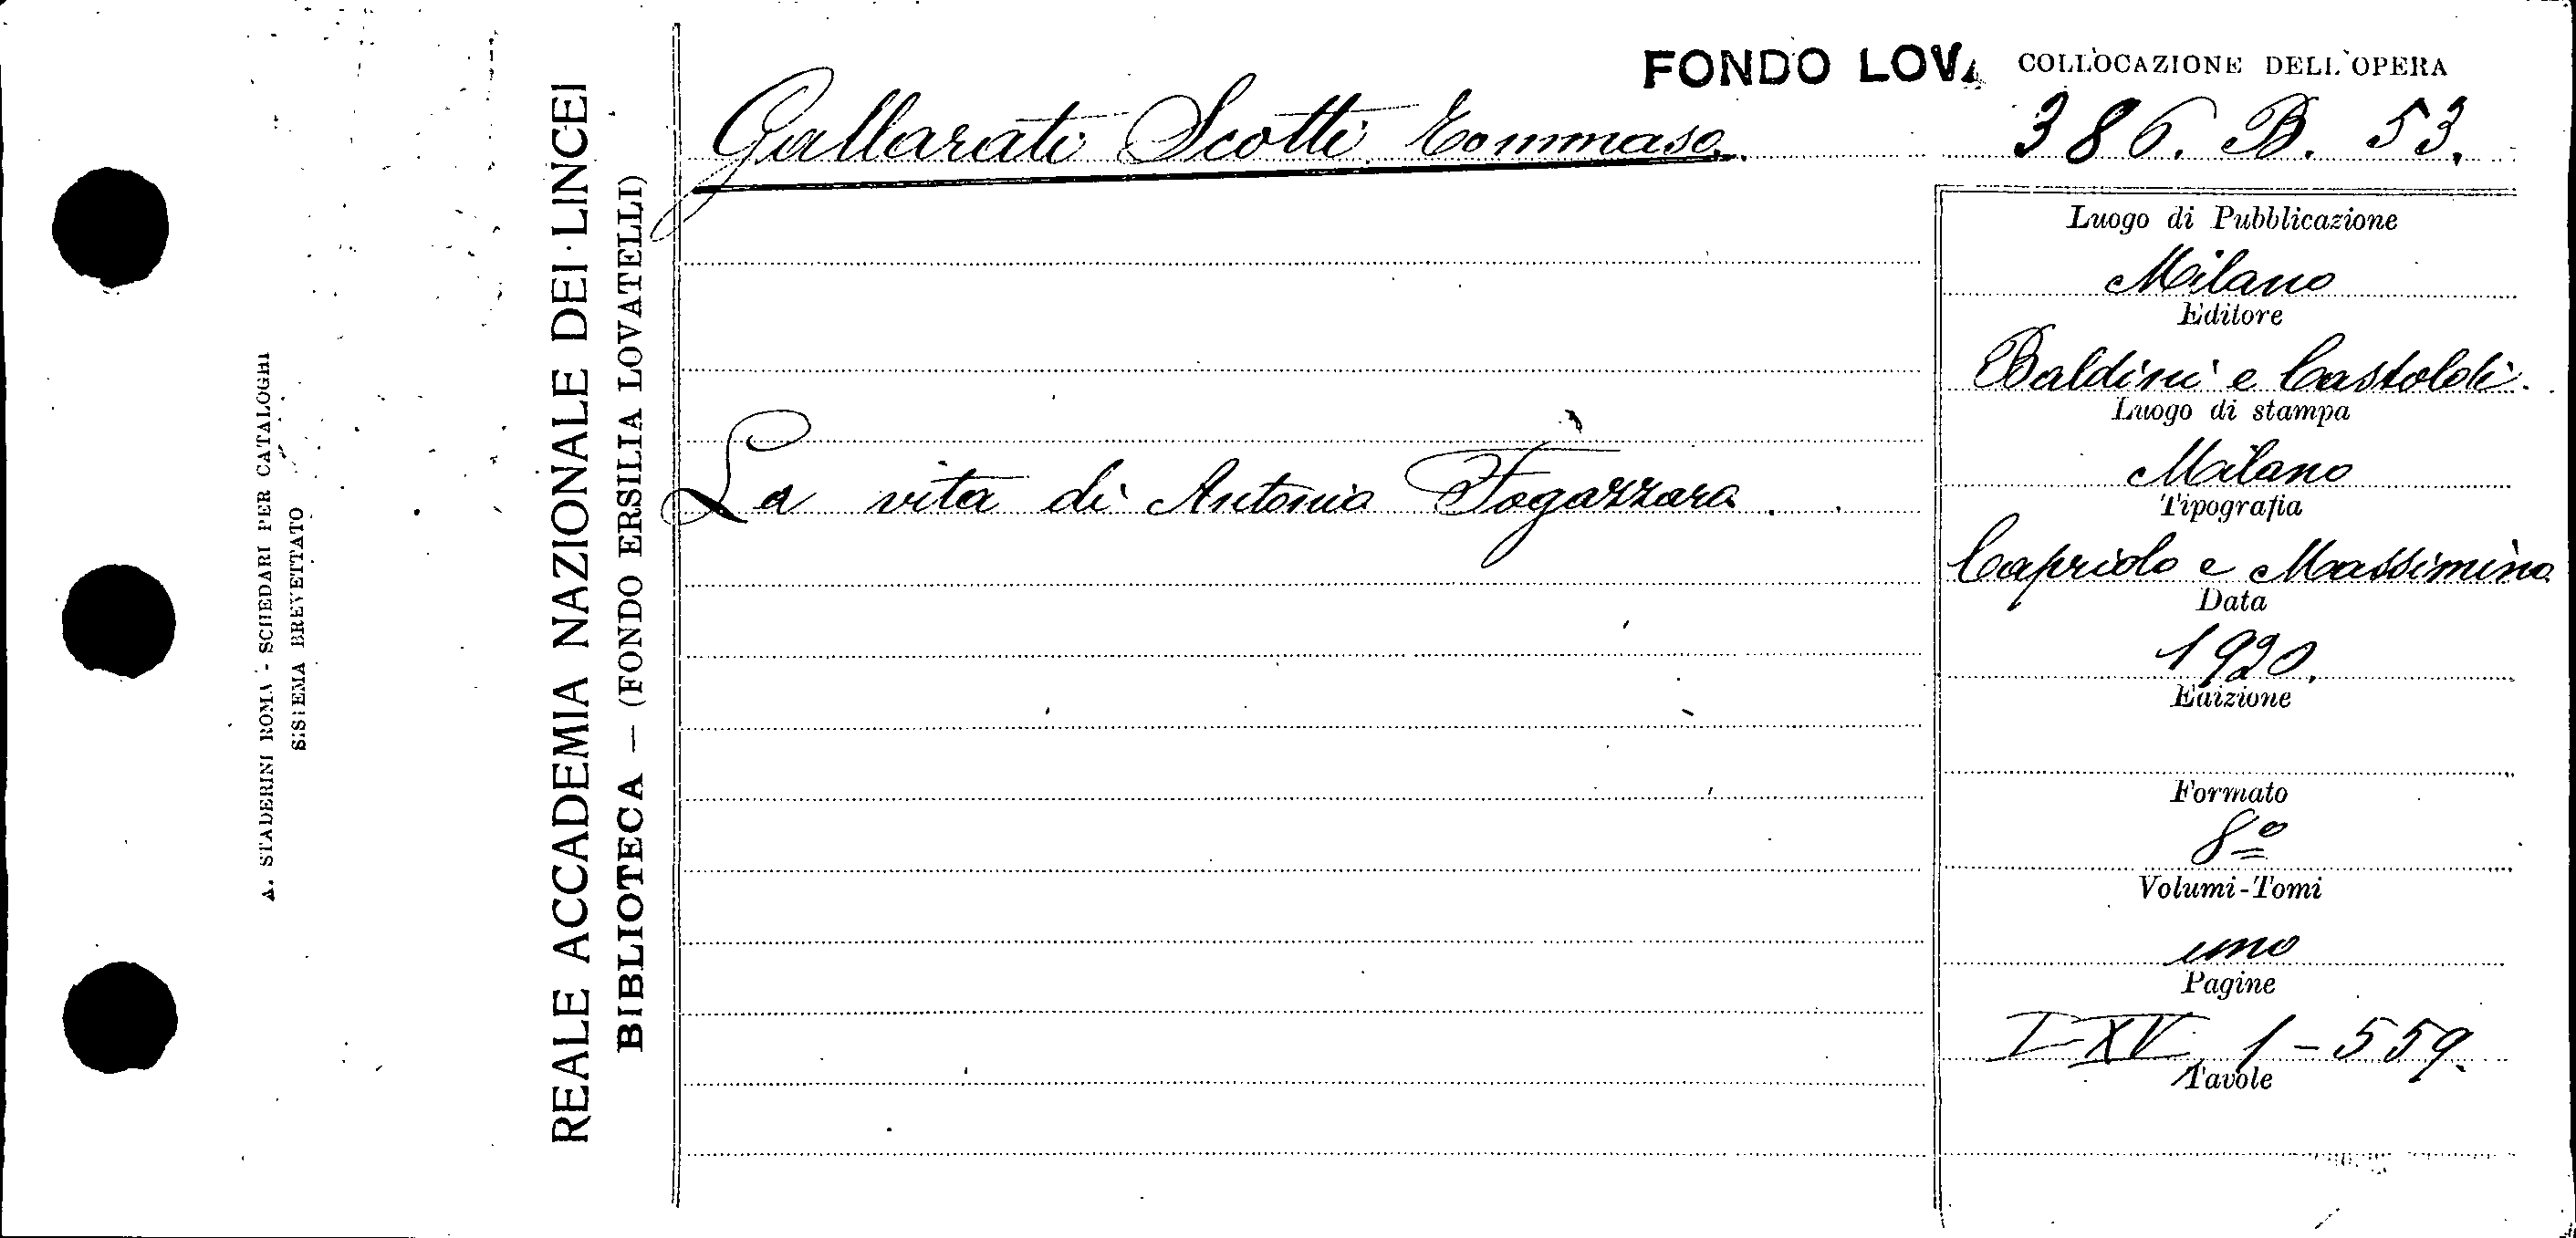 A. STADERINI ROMA - SCHEDARI PER CATALOGHI
SISTEMA BREVETTATO
REALE ACCADEMIA NAZIONALE DEI LINCEI
BIBLIOTECA — (FONDO ERSILIA LOVATELLI)
FONDO LOV. COLLOCAZIONE DELL'OPERA
Gallarati Scotti Tommaso. 386. B. 53.
La vita di Antonio Fogazzaro.
Luogo di Pubblicazione
Milano
Editore
Baldini e Castoldi.
Luogo di stampa
Milano
Tipografia
Capriolo e Massimino
Data
1920.
Edizione
Formato
8º
Volumi-Tomi
uno
Pagine
I-XV, 1-559.
Tavole